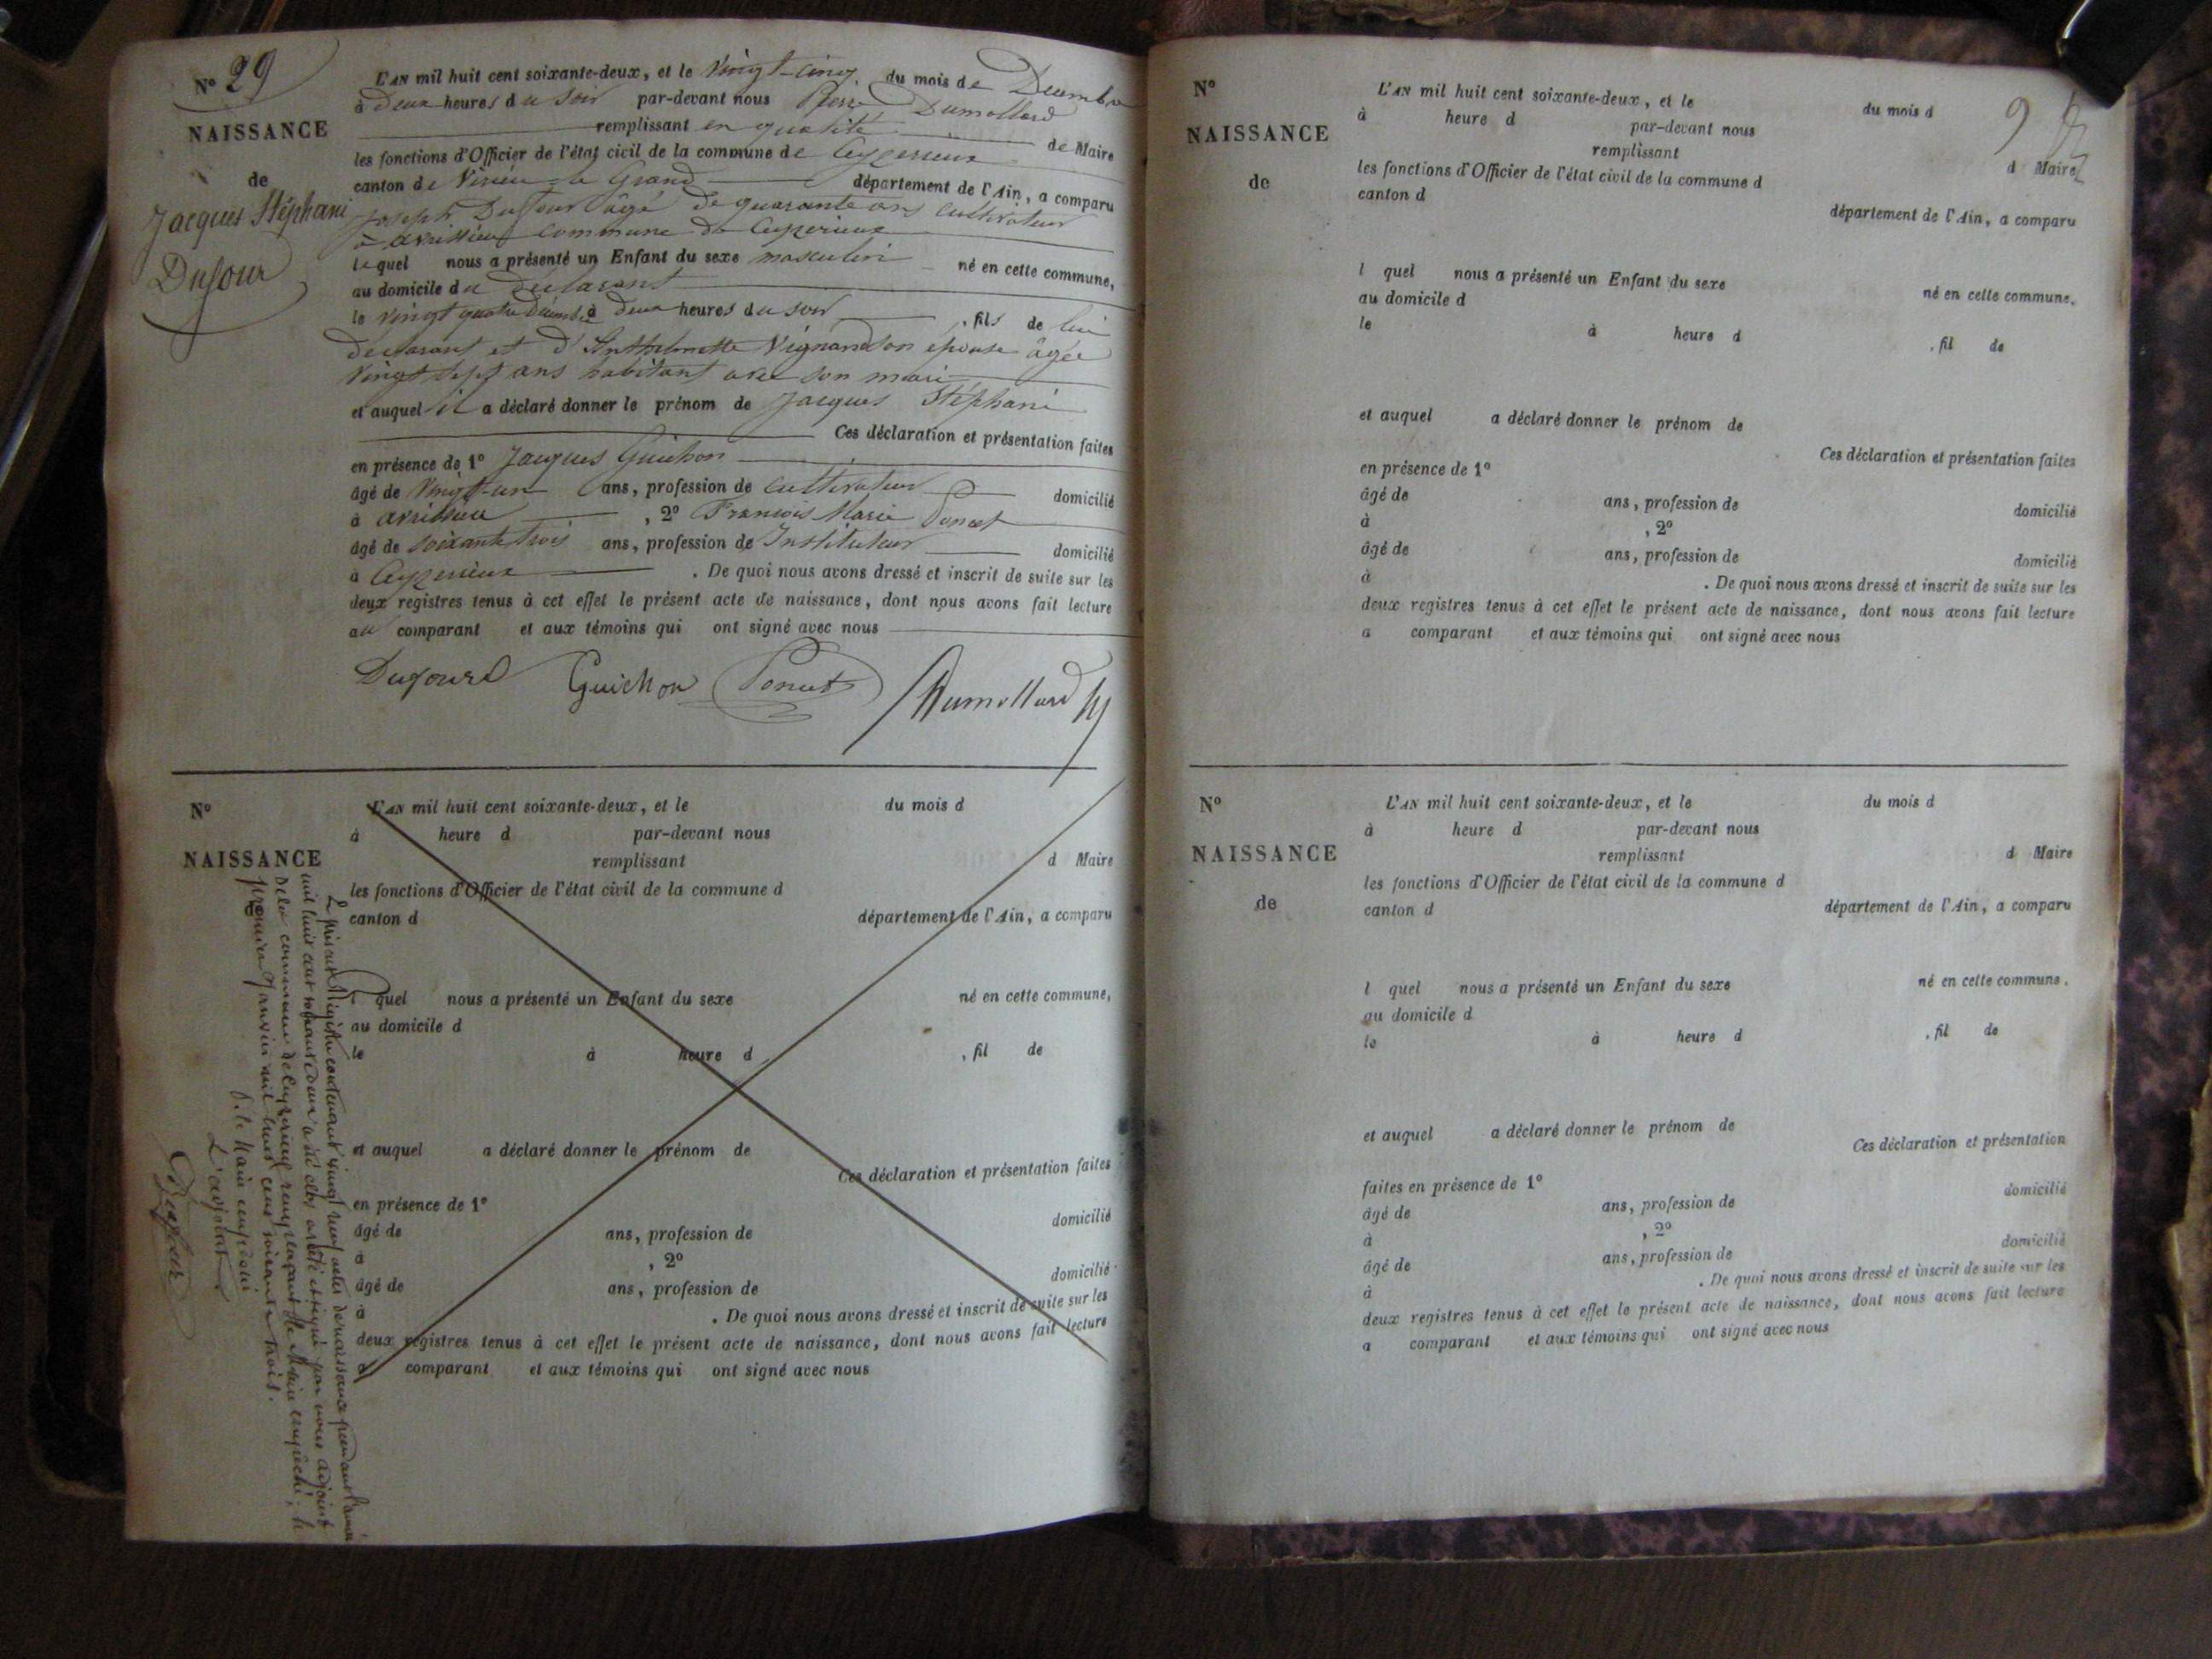 Nº 29
NAISSANCE
de
Jacques Stéphani
Dufour
L'AN mil huit cent soixante-deux, et le Vingt-cinq du mois de Decembre
à deux heures du soir par-devant nous Dumollard
remplissant en qualité de Maire
les fonctions d'Officier de l'état civil de la commune de Ceyzerieux
canton de Virieu le Grand département de l'Ain, a comparu
Joseph Dufour âgé de quarante ans cultivateur
à avrissieu commune de Ceyzerieux
lequel nous a présenté un Enfant du sexe masculin né en cette commune,
au domicile du déclarant
le vingt quatre Décembre à deux heures du soir , fils de lui
déclarant et d' Anthelmette Vignand son épouse âgée
Vingt sept ans habitant avec son mari
et auquel il a déclaré donner le prénom de Jacques Stéphani
Ces déclaration et présentation faites
en présence de 1º Jacques Guichon
âgé de Vingt-un ans, profession de cultivateur domicilié
à avrissieu , 2º François Marie Ponet
âgé de soixante trois ans, profession de Instituteur domicilié
à Ceyzerieux . De quoi nous avons dressé et inscrit de suite sur les
deux registres tenus à cet effet le présent acte de naissance, dont nous avons fait lecture
au comparant et aux témoins qui ont signé avec nous
Dufour Guichon Ponet Dumollard
Nº
NAISSANCE
de
L'AN mil huit cent soixante-deux, et le du mois d
à heure d par-devant nous
remplissant d Maire
les fonctions d'Officier de l'état civil de la commune d
canton d département de l'Ain, a comparu
l quel nous a présenté un Enfant du sexe né en cette commune,
au domicile d
le à heure d , fil de
et auquel a déclaré donner le prénom de
Ces déclaration et présentation faites
en présence de 1º
âgé de ans, profession de domicilié
à , 2º
âgé de ans, profession de domicilié
à . De quoi nous avons dressé et inscrit de suite sur les
deux registres tenus à cet effet le présent acte de naissance, dont nous avons fait lecture
a comparant et aux témoins qui ont signé avec nous
Le présent Registre contenant vingt neuf actes de naissance pendant l'année
mil huit cent soixante deux a été clos arrêté et signé par nous adjoint
de la commune de Ceyzerieux remplaçant le Maire empêché, le
premier Janvier mil huit cent soixante trois.
P. le Maire empêché
L'adjoint
Nº
NAISSANCE
de
9
L'AN mil huit cent soixante-deux, et le du mois d
à heure d par-devant nous
remplissant d Maire
les fonctions d'Officier de l'état civil de la commune d
canton d département de l'Ain, a comparu
l quel nous a présenté un Enfant du sexe né en cette commune,
au domicile d
le à heure d , fil de
et auquel a déclaré donner le prénom de
Ces déclaration et présentation faites
en présence de 1º
âgé de ans, profession de domicilié
à , 2º
âgé de ans, profession de domicilié
à . De quoi nous avons dressé et inscrit de suite sur les
deux registres tenus à cet effet le présent acte de naissance, dont nous avons fait lecture
a comparant et aux témoins qui ont signé avec nous
Nº
NAISSANCE
de
L'AN mil huit cent soixante-deux, et le du mois d
à heure d par-devant nous
remplissant d Maire
les fonctions d'Officier de l'état civil de la commune d
canton d département de l'Ain, a comparu
l quel nous a présenté un Enfant du sexe né en cette commune,
au domicile d
le à heure d , fil de
et auquel a déclaré donner le prénom de
Ces déclaration et présentation
faites en présence de 1º
âgé de ans, profession de domicilié
à , 2º
âgé de ans, profession de domicilié
à . De quoi nous avons dressé et inscrit de suite sur les
deux registres tenus à cet effet le présent acte de naissance, dont nous avons fait lecture
a comparant et aux témoins qui ont signé avec nous